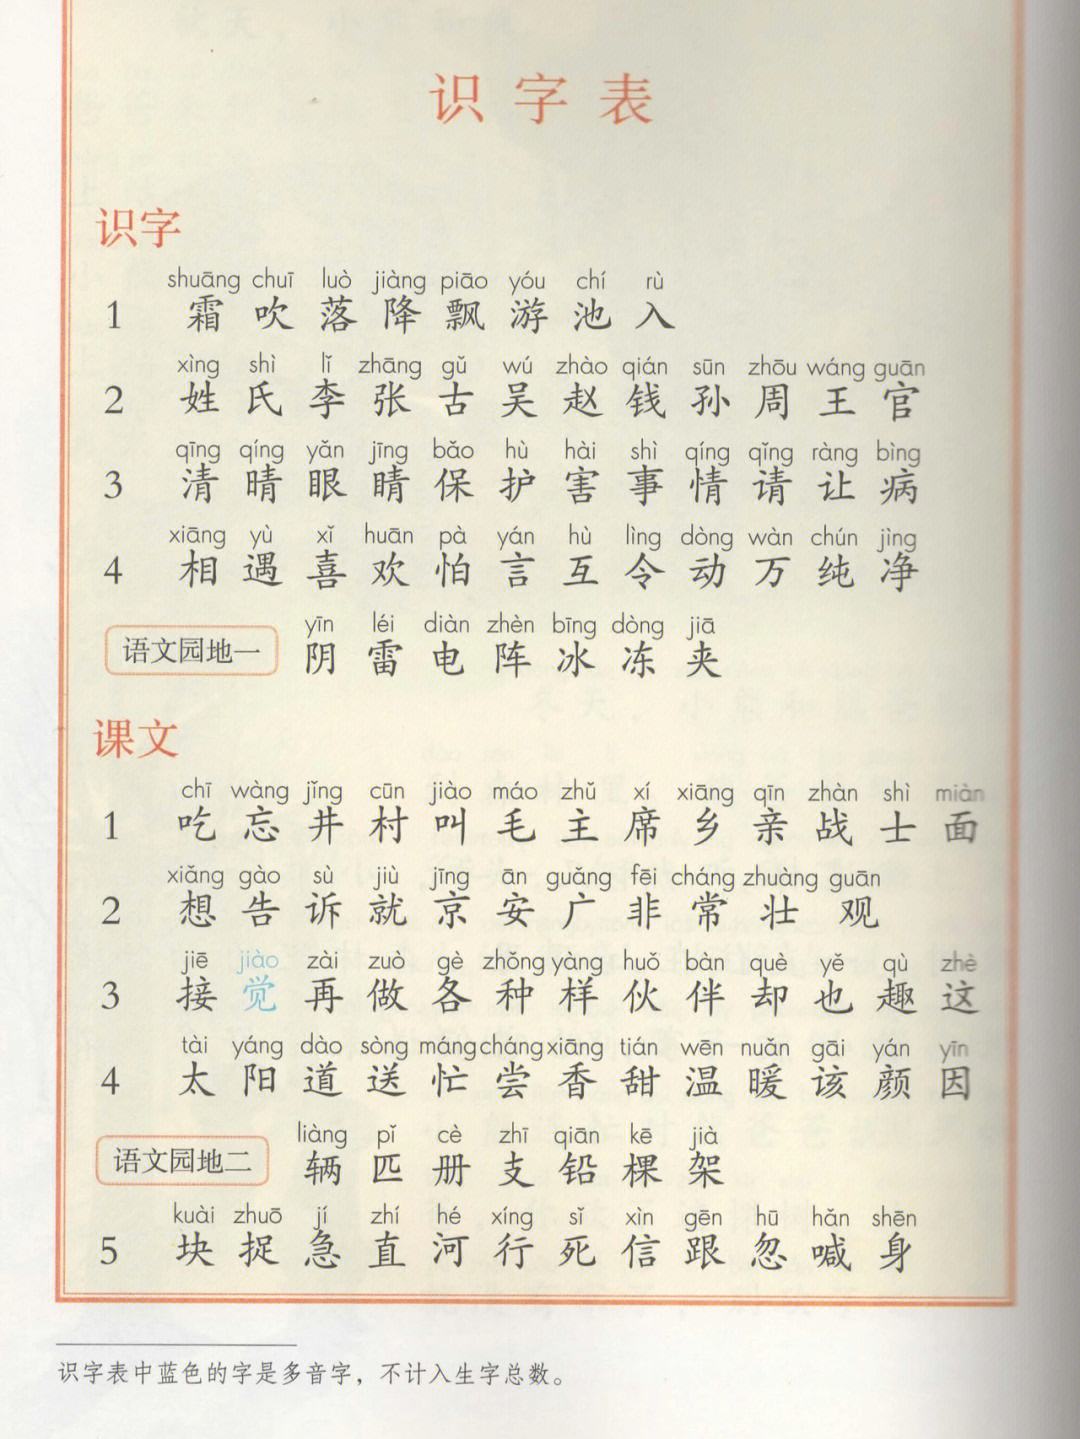 识字表
识字
shuāng chuī luò jiàng piāo yóu chí rù
1 霜 吹 落 降 飘 游 池 入
xìng shì lǐ zhāng gǔ wú zhào qián sūn zhōu wáng guān
2 姓 氏 李 张 古 吴 赵 钱 孙 周 王 官
qīng qíng yǎn jīng bǎo hù hài shì qíng qǐng ràng bìng
3 清 晴 眼 睛 保 护 害 事 情 请 让 病
xiāng yù xǐ huān pà yán hù lìng dòng wàn chún jìng
4 相 遇 喜 欢 怕 言 互 令 动 万 纯 净
yīn léi diàn zhèn bīng dòng jiā
语文园地一 阴 雷 电 阵 冰 冻 夹
课文
chī wàng jǐng cūn jiào máo zhǔ xí xiāng qīn zhàn shì miàn
1 吃 忘 井 村 叫 毛 主 席 乡 亲 战 士 面
xiǎng gào sù jiù jīng ān guǎng fēi cháng zhuàng guān
2 想 告 诉 就 京 安 广 非 常 壮 观
jiē jiào zài zuò gè zhǒng yàng huǒ bàn què yě qù zhè
3 接 觉 再 做 各 种 样 伙 伴 却 也 趣 这
tài yáng dào sòng máng cháng xiāng tián wēn nuǎn gāi yán yīn
4 太 阳 道 送 忙 尝 香 甜 温 暖 该 颜 因
liàng pǐ cè zhī qiān kē jià
语文园地二 辆 匹 册 支 铅 棵 架
kuài zhuō jí zhí hé xíng sǐ xìn gēn hū hǎn shēn
5 块 捉 急 直 河 行 死 信 跟 忽 喊 身
识字表中蓝色的字是多音字，不计入生字总数。